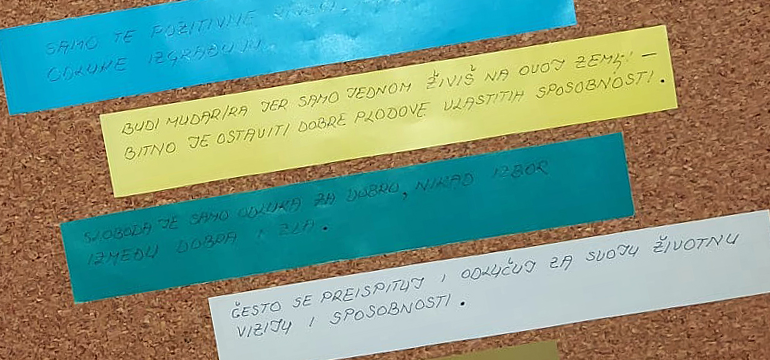 SAMO TE POZITIVNE
ODLUKE IZGRAĐUJU.
BUDI MUDAR/RA JER SAMO JEDNOM ŽIVIŠ NA OVOJ ZEMLJI –
BITNO JE OSTAVITI DOBRE PLODOVE VLASTITIH SPOSOBNOSTI.
SLOBODA JE SAMO ODLUKA ZA DOBRO, NIKAD IZBOR
IZMEĐU DOBRA I ZLA.
ČESTO SE PREISPITUJ I ODLUČUJ ZA SVOJU ŽIVOTNU
VIZIJU I SPOSOBNOSTI.